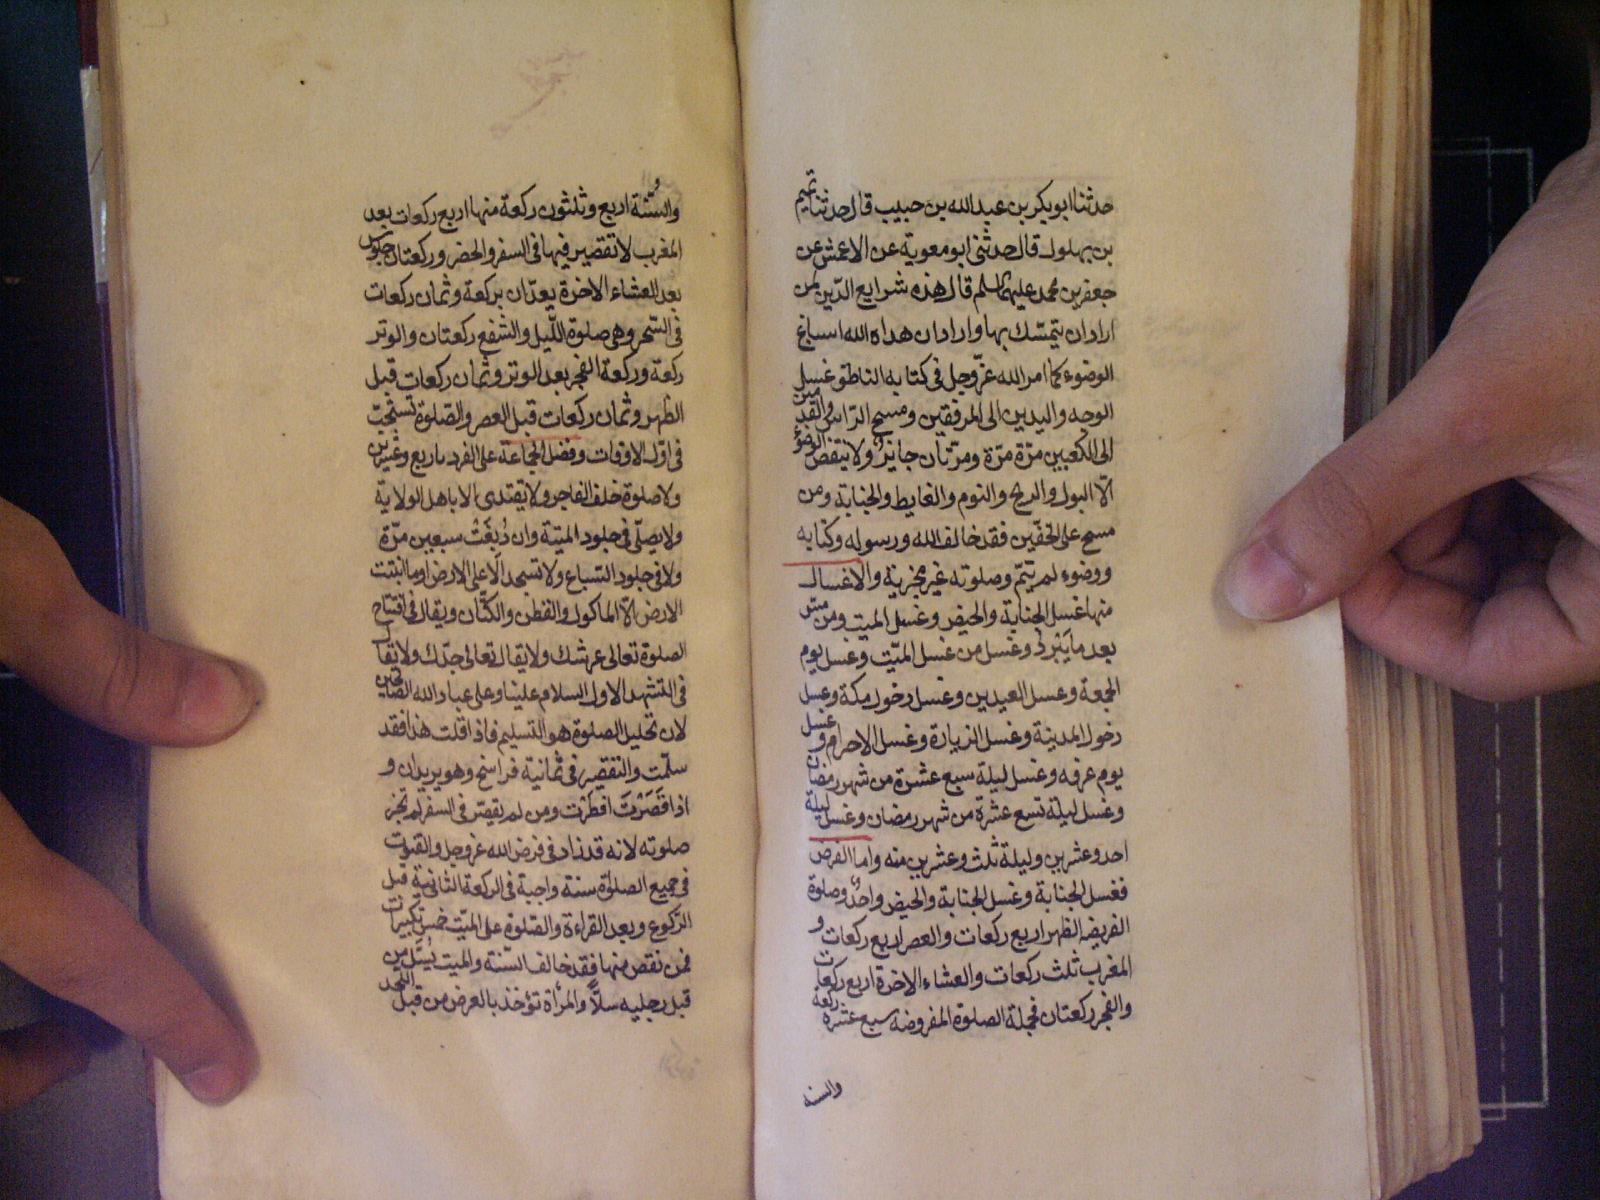 حدثنا ابو بكر بن عبد الله بن حبيب قال حدثنا تميم
بن بهلول قال حدثنى ابو معوية عن الاعمش عن
جعفر بن محمد عليهما السلم قال هذه شرايع الدّين لمن
اراد ان يتمسّك بها واراد ان هداه الله اسباغ
الوضوء كما امر الله عزّ وجل فى كتابه الناطق غسل
الوجه واليدين الى المرفقين ومسح الرّاس والقدمين
الى الكعبين مرّة مرّة ومرّتان جايز ولا ينقض الوضوء
الّا البول والريح والنوم والغايط والجنابة ومن
مسح على الخفّين فقد خالف الله ورسوله وكتابه
ووضوء لم يتمّ وصلوته غير مجزية والاغسال
منها غسل الجنابة والحيض وغسل الميت ومن مسّ
بعد ما يَبْرد وغسل من غسل الميّت وغسل يوم
الجمعة وغسل العيدين وغسل دخول مكة وغسل
دخول المدينة وغسل الزيارة وغسل الاحرام وغسل
يوم عرفه وغسل ليلة سبع عشرة من شهر رمضان
وغسل ليلة تسع عشرة من شهر رمضان وغسل ليلة
احد وعشرين وليلة ثلث وعشرين منه واما الفرض
فغسل الجنابة وغسل الجنابة والحيض واحد وصلوة
الفريضه الظهر اربع ركعات والعصر اربع ركعات و
المغرب ثلث ركعات والعشاء الاخرة اربع ركعات
والفجر ركعتان فجملة الصلوة المفروضة سبع عشره ركعة
والسنه
والسُّنّة اربع وثلثون ركعة منها اربع ركعات بعد
المغرب لا تقصير فيها فى السفر والحضر وركعتان جلوس
بعد العشاء الاخرة يعدّان بركعة وثمان ركعات
فى السّحر وهى صلوة اللّيل والشفع ركعتان والوتر
ركعة وركعة الفجر بعد الوتر وثمان ركعات قبل
الظهر وثمان ركعات قبل العصر والصّلوة تستحبّ
فى اوّل الاوقات وفضل الجماعة على الفرد باربع وعشرين
ولا صلوة خلف الفاجر ولا يقتدى الا باهل الولاية
ولا يصلّى فى جلود الميتة وان دُبِغَتْ سبعين مرّة
ولا فى جلود السباع ولا تسجد الّا على الارض او ما انبتت
الارض الّا الماكول والقطن والكتّان ويقال فى افتتاح
الصلوة تعالى عرشك ولا يقال تعالى جدّك ولا يقال
فى التشهد الاول السلام علينا وعلى عباد الله الصّالحين
لان تحليل الصلوة هو التسليم فاذا قلت هذا فقد
سلّمت والتقصير فى ثمانية فراسخ وهو بريدان و
اذا قَصَرْتَ افطرْت ومن لم يقصّر فى السفر لم تجز
صلوته لانه قد زاد فى فرض الله عزوجل والقنوت
فى جميع الصلوة سنة واجبة فى الركعة الثانية قبل
الرّكوع وبعد القراءة والصّلوة على الميّت خمس تكبيرات
فمن نقص منها فقد خالف السّنة والميت يُسَلّ من
قبل رجليه سلاًّ والمرأة تؤخذ بالعرض من قبل اللحد